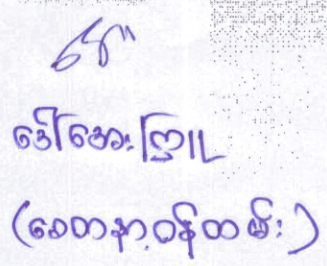 ဒေါ်အေးကြူ
(စေတနာ့ဝန်ထမ်း)